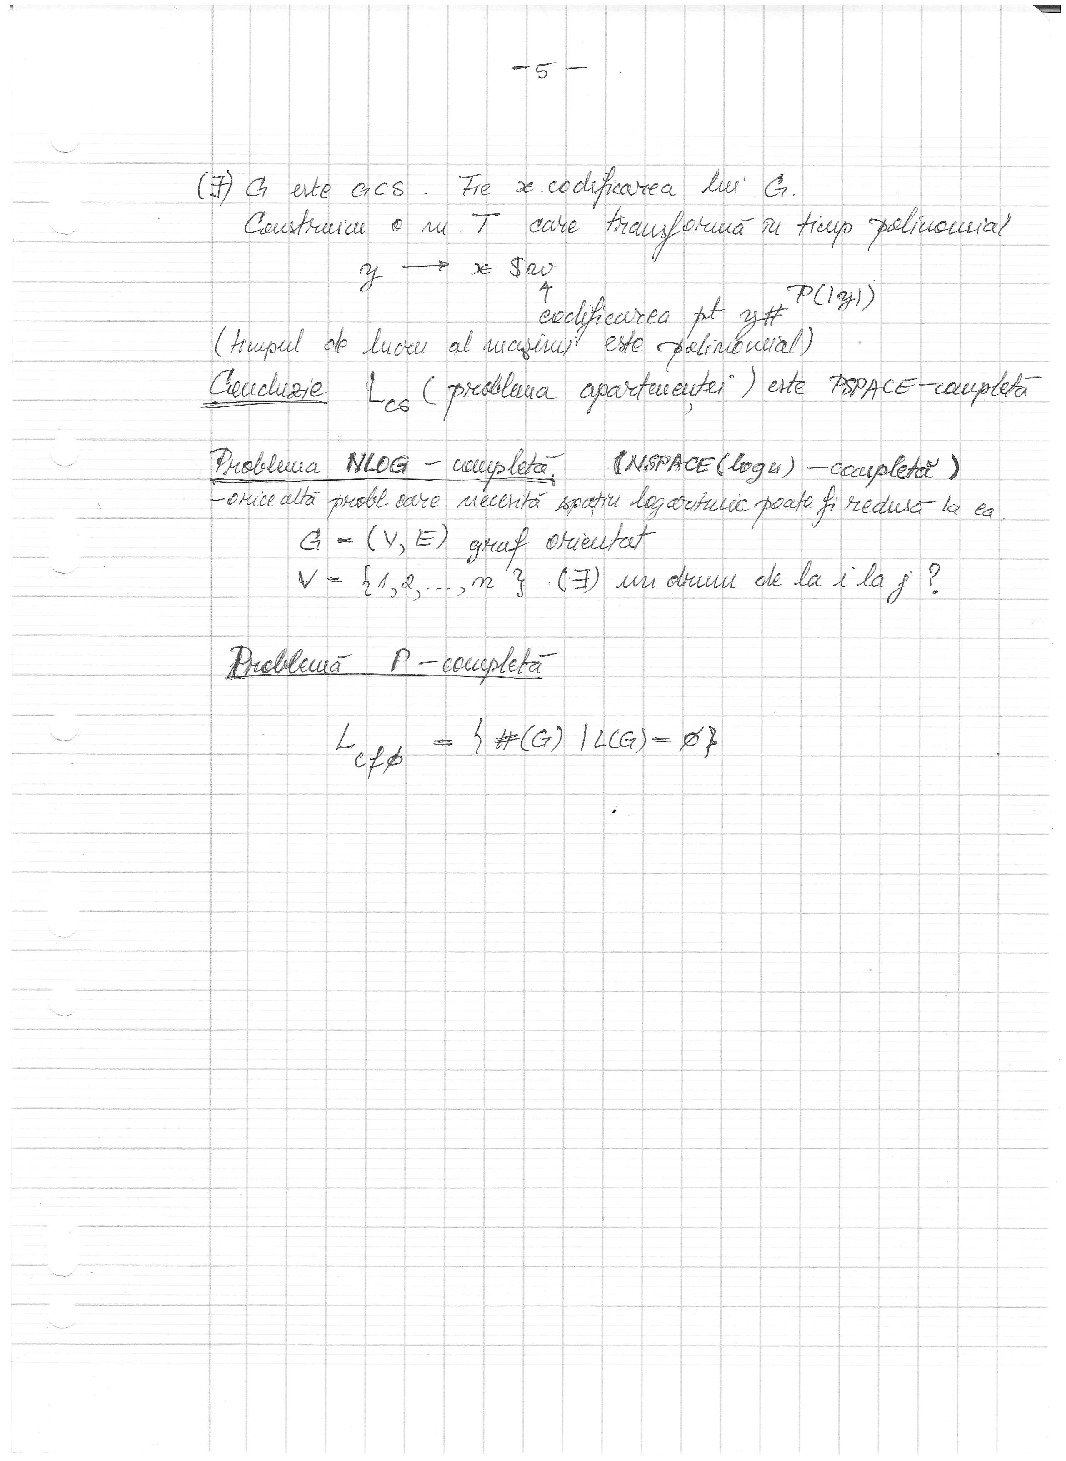 - 5 -
(∃) G este GCS. Fie x codificarea lui G.
Construim o m T care transformă în timp polinomial
y → x $ w
↑
codificarea pt y#^P(|y|)
(timpul de lucru al mașinii este polinomial)
Concluzie L_cs (problema apartenenței) este PSPACE-completă
Problema NLOG - completă. (NSPACE(log n) - completă)
- orice altă probl. care necesită spațiu logaritmic poate fi redusă la ea.
G = (V, E) graf orientat
V = {1, 2, ..., n}. (∃) un drum de la i la j ?
Problemă P - completă
L_cf∅ = { #(G) | L(G) = ∅}